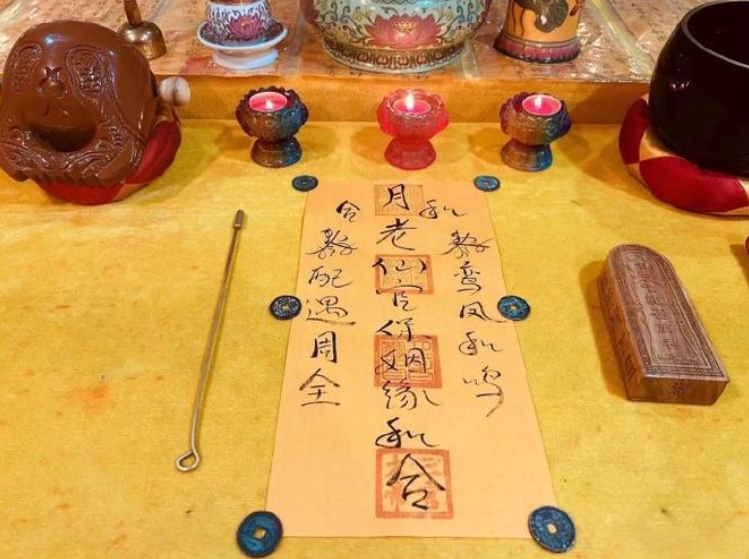 和敕鸾凤和鸣
月老仙官保姻缘和合
合敕配遇周全